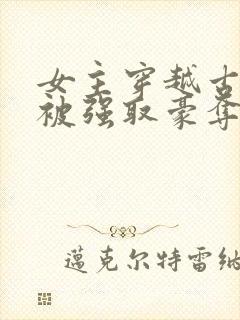 女主穿越古
被强取豪夺
邁克尔特雷纳